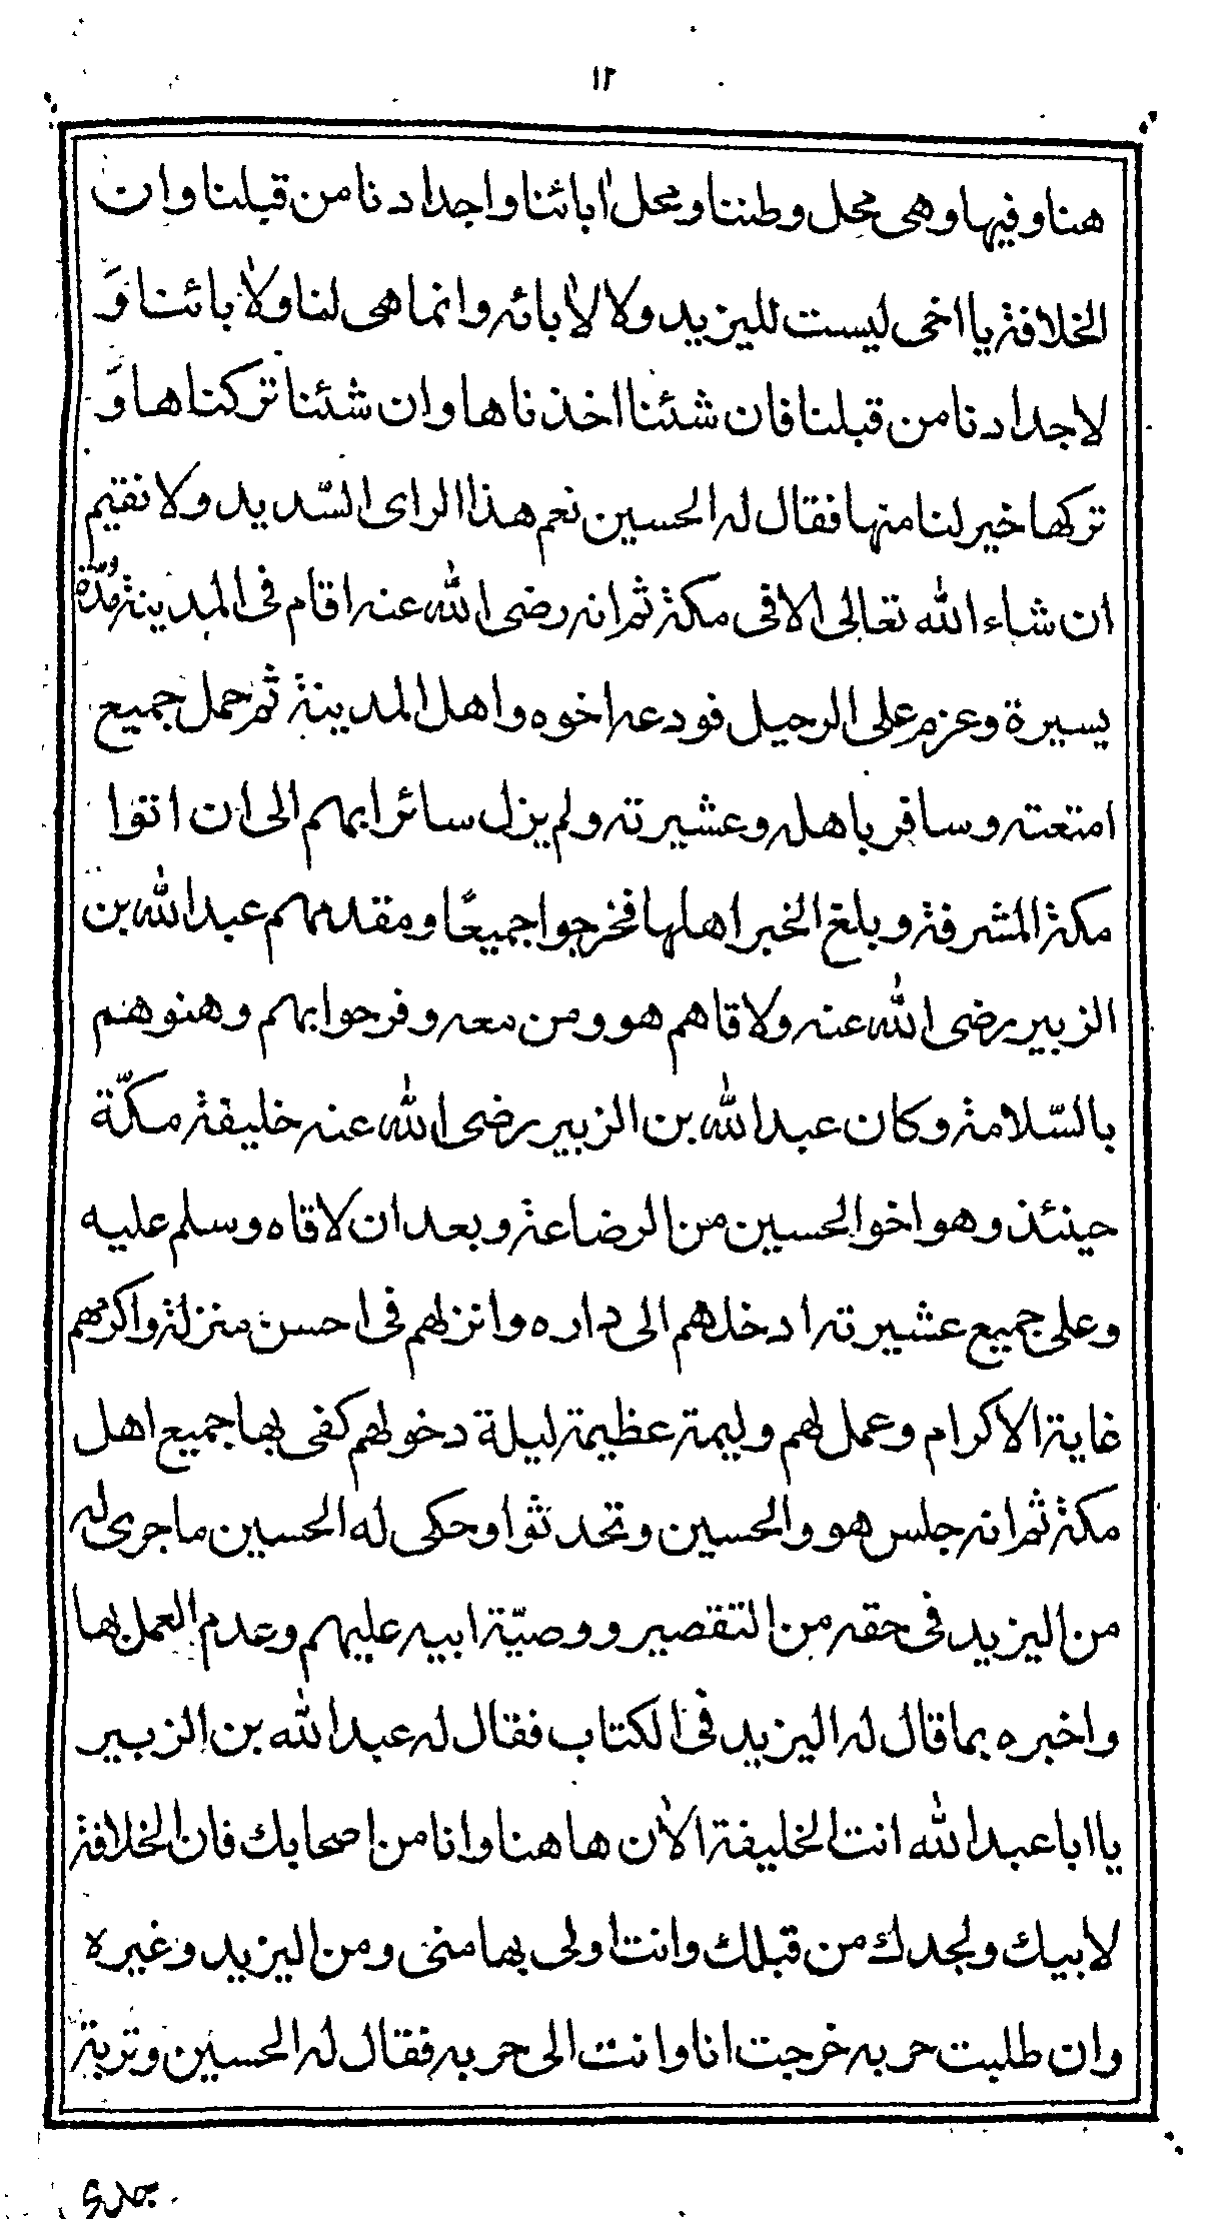 ١٢
هنا وفيها وهى محل وطننا ومحل اٰبائنا واجدادنا من قبلنا وان
الخلافة يا اخى ليست لليزيد ولا لاٰبائه وانما هى لنا ولاٰبائنا وَ
لاجدادنا من قبلنا فان شئنا اخذناها وان شئنا تركناها وَ
تركها خير لنا منها فقال له الحسين نعم هذا الراى السّديد ولا نقيم
ان شاء الله تعالى الا فى مكة ثم انه رضى الله عنه اقام فى المدينة مُدّة
يسيرة وعزم على الرحيل فودعه اخوه واهل المدينة ثم حمل جميع
امتعته وسافر باهله وعشيرته ولم يزل سائرا بهم الى ان اتوا
مكة المشرفة وبلغ الخبر اهلها فخرجوا جميعًا ومقدمهم عبد الله بن
الزبير رضى الله عنه ولاقاهم هو ومن معه وفرحوا بهم وهنوهم
بالسّلامة وكان عبد الله بن الزبير رضى الله عنه خليفة مكّة
حينئذ وهو اخو الحسين من الرضاعة وبعد ان لاقاه وسلم عليه
وعلى جميع عشيرته ادخلهم الى داره وانزلهم فى احسن منزلة واكرمهم
غاية الاكرام وعمل لهم وليمة عظيمة ليلة دخولهم كفى بها جميع اهل
مكة ثم انه جلس هو والحسين وتحدثوا وحكى له الحسين ما جرى له
من اليزيد فى حقه من التقصير ووصيّة ابيه عليهم وعدم العمل بها
واخبره بما قال له اليزيد فى الكتاب فقال له عبد الله بن الزبير
يا ابا عبد الله انت الخليفة الاٰن هاهنا وانا من اصحابك فان الخلافة
لابيك ولجدك من قبلك وانت اولى بها منى ومن اليزيد وغيره
وان طلبت حربه خرجت انا وانت الى حربه فقال له الحسين وتربة
جدى